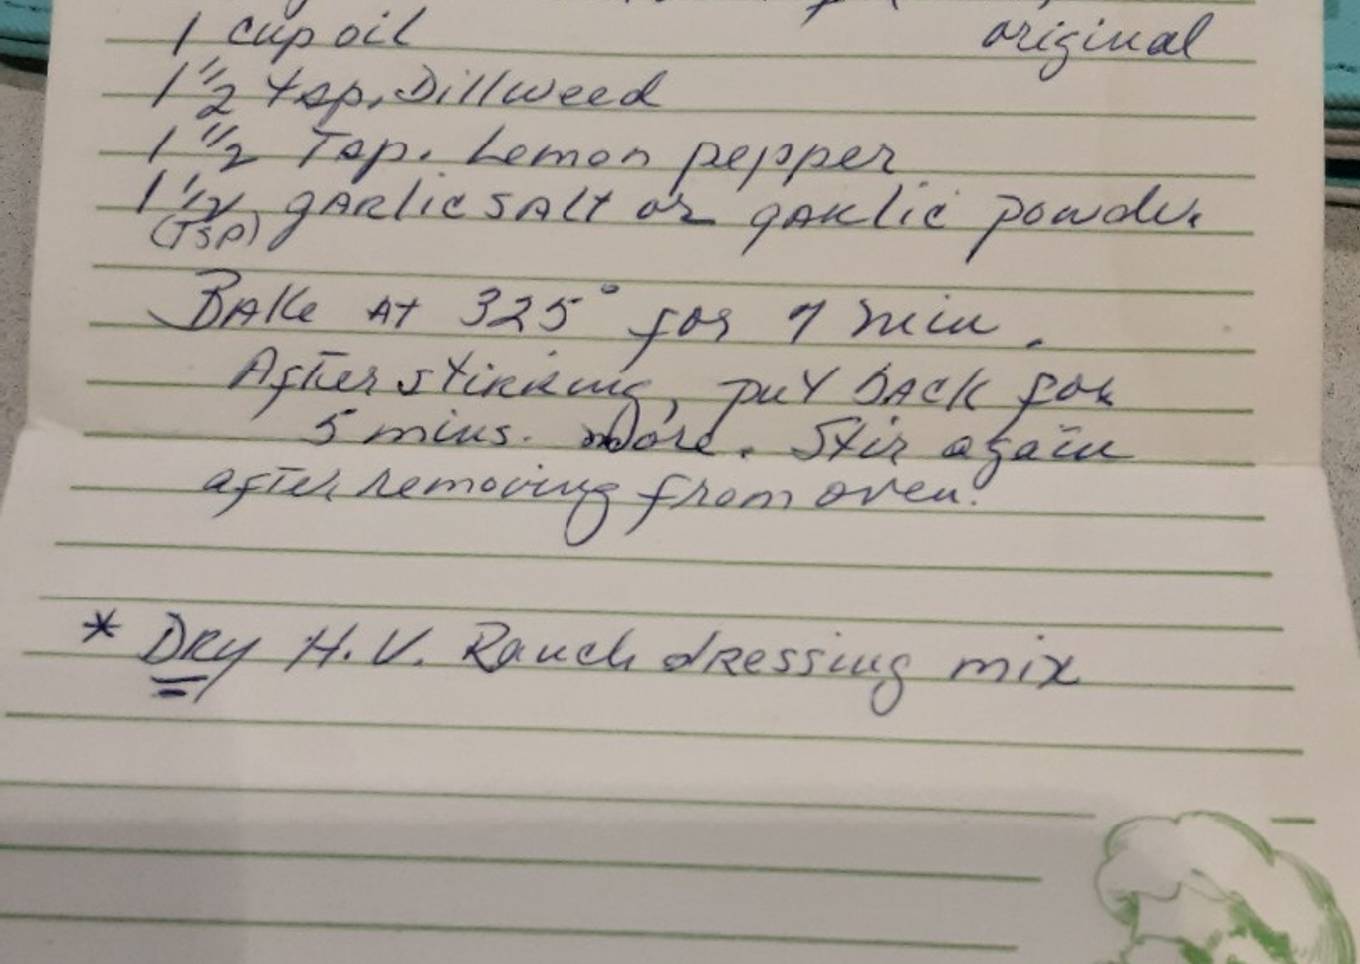 1 cup oil original
1 1/2 tsp. Dillweed
1 1/2 Tsp. Lemon pepper
1 1/2 gARlic SAlt or gARlic powder
(TSP)
BAKe At 325° for 7 min.
After stirring, put bACK for
5 mins. more. Stir again
after removing from oven.
* DRy H.V. Ranch dRessing mix